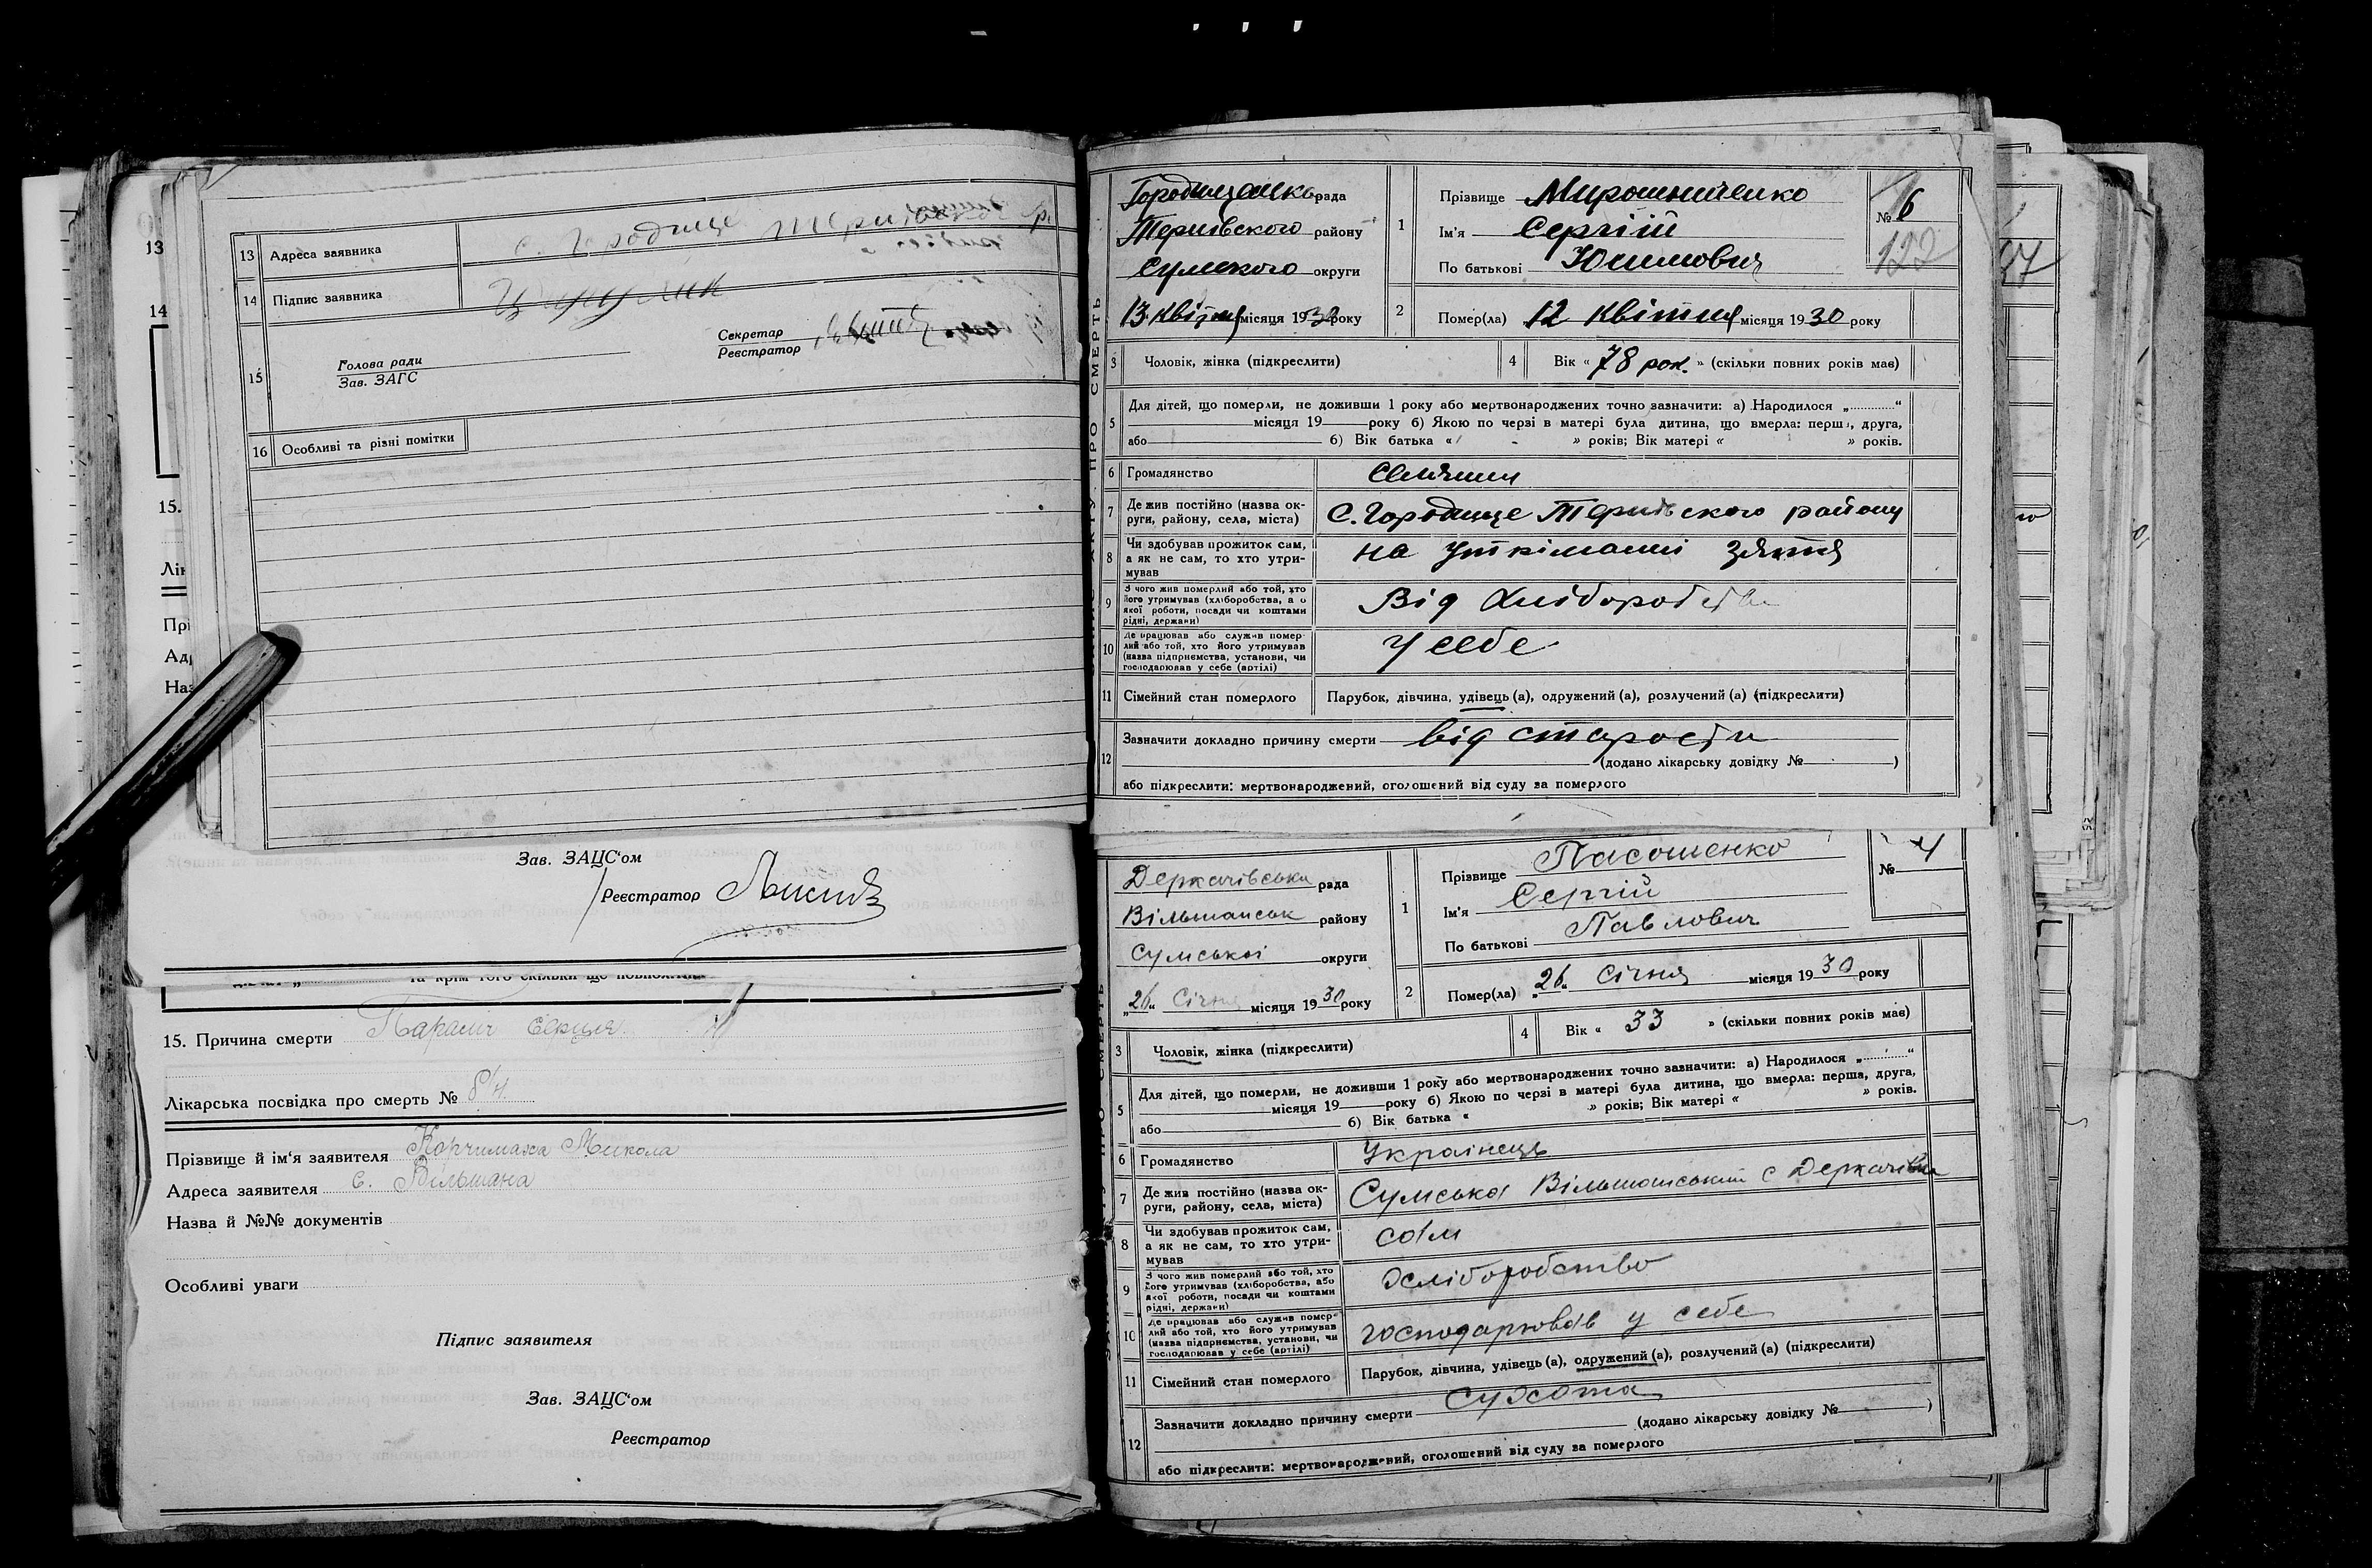 13 Адреса заявника с. Городище Тернівського р.
14 Підпис заявника
15
Секретар
Реєстратор
Голова ради
Зав. ЗАГС
16 Особливі та різні помітки
13
14
15.
Зав. ЗАЦС'ом
Реєстратор
15. Причина смерти Параліч серця
Лікарська посвідка про смерть № б/н.
Прізвище й ім'я заявителя Микола
Адреса заявителя с. Вільшана
Назва й №№ документів
Особливі уваги
Підпис заявителя
Зав. ЗАЦС'ом
Реєстратор
Городищенська рада
Тернівського району
Сумського округи
13 Квітня місяця 1930 року
1 Прізвище Мирошниченко
Ім'я Сергій
По батькові
№ 6
122
2 Помер(ла) 12 Квітня місяця 1930 року
3 Чоловік, жінка (підкреслити)
4 Вік « 78 рок. » (скільки повних років має)
5 Для дітей, що померли, не доживши 1 року або мертвонароджених точно зазначити: а) Народилося „............“
місяця 19 року б) Якою по черзі в матері була дитина, що вмерла: перша, друга,
або б) Вік батька « » років; Вік матері « » років.
6 Громадянство селянин
7 Де жив постійно (назва ок-
руги, району, села, міста) С. Городище Тернівського району
8 Чи здобував прожиток сам,
а як не сам, то хто утри-
мував на утріманні зятя
9 З чого жив померлий або той, хто
його утримував (хліборобства, а о
якої роботи, посади чи коштами
рідні, держави) Від Хліборобства
10 Де працював або служив помер-
лий або той, хто його утримував
(назва підприємства, установи, чи
господарював у себе (артілі) У себе
11 Сімейний стан померлого Парубок, дівчина, удівець (а), одружений (а), розлучений (а) (підкреслити)
12 Зазначити докладно причину смерти від старости
(додано лікарську довідку № )
або підкреслити: мертвонароджений, оголошений від суду за померлого
Деркачівська рада
Вільшанськ району
Сумської округи
„26“ Січня місяця 1930 року
1 Прізвище Пасошенко
Ім'я Сергій
По батькові Павлович
№ 4
2 Помер(ла) „26“ Січня місяця 1930 року
3 Чоловік, жінка (підкреслити)
4 Вік « 33 » (скільки повних років має)
5 Для дітей, що померли, не доживши 1 року або мертвонароджених точно зазначити: а) Народилося „............“
місяця 19 року б) Якою по черзі в матері була дитина, що вмерла: перша, друга,
або б) Вік батька « » років; Вік матері « » років.
6 Громадянство Українець
7 Де жив постійно (назва ок-
руги, району, села, міста) Сумської Вільшанський с Деркачівка
8 Чи здобував прожиток сам,
а як не сам, то хто утри-
мував сам
9 З чого жив померлий або той, хто
його утримував (хліборобства, або
якої роботи, посади чи коштами
рідні, держави) Хліборобство
10 Де працював або служив помер-
лий або той, хто його утримував
(назва підприємства, установи, чи
господарював у себе (артілі) господарював у себе
11 Сімейний стан померлого Парубок, дівчина, удівець (а), одружений (а), розлучений (а) (підкреслити)
12 Зазначити докладно причину смерти Сухота
(додано лікарську довідку № )
або підкреслити: мертвонароджений, оголошений від суду за померлого